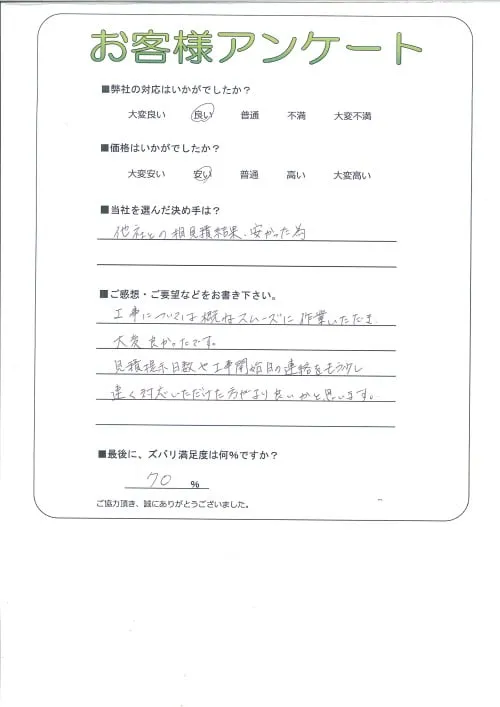 お客様アンケート
■弊社の対応はいかがでしたか？
大変良い 良い 普通 不満 大変不満
■価格はいかがでしたか？
大変安い 安い 普通 高い 大変高い
■当社を選んだ決め手は？
他社との相見積結果、安かった為
■ご感想・ご要望などをお書き下さい。
工事については概ねスムーズに作業いただき
大変良かったです。
見積提示日数や工事開始日の連絡をもう少し
速く対応いただけた方がより良いかと思います。
■最後に、ズバリ満足度は何％ですか？
70 ％
ご協力頂き、誠にありがとうございました。